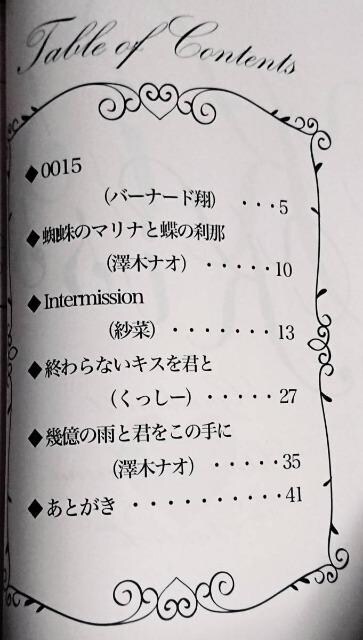 Table of Contents
◆0015
(バーナード翔) ・・・5
◆蜘蛛のマリナと蝶の刹那
(澤木ナオ) ・・・・・10
◆Intermission
(紗菜) ・・・・・・・13
◆終わらないキスを君と
(くっしー) ・・・・・27
◆幾億の雨と君をこの手に
(澤木ナオ) ・・・・・35
◆あとがき ・・・・・・・・・・41